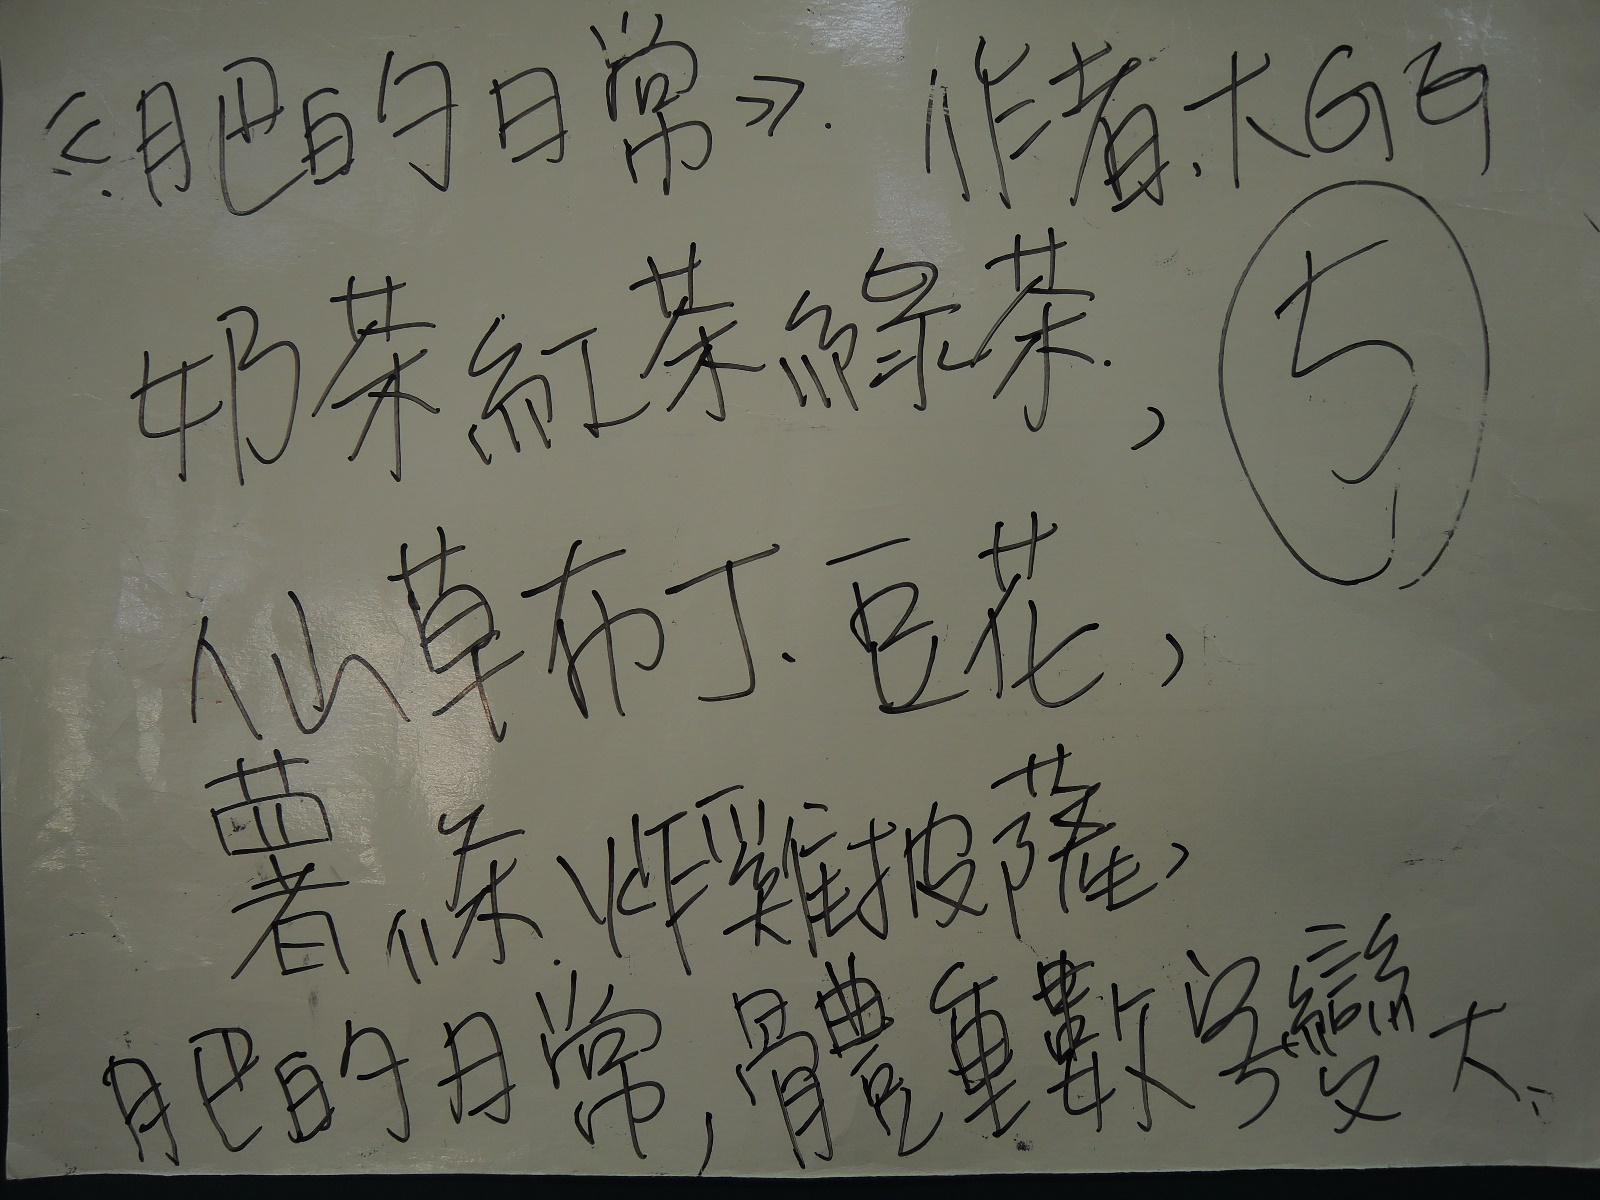 《肥的日常》. 作者.大GG
奶茶紅茶綠茶.,
5
仙草布丁.豆花,
薯條.炸雞披薩,
肥的日常,體重數字變大.